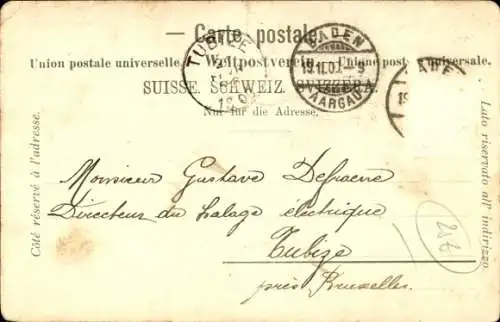 — Carte postale. —
Union postale universelle. Weltpostverein. Unione postale universale.
SUISSE. SCHWEIZ. SVIZZERA.
Nur für die Adresse.
Côté réservé à l'adresse.
Lato riservato all' indirizzo.
TUBIZE
BADEN
AARGAU
Monsieur Gustave Defacrre
Directeur du halage électrique
Tubize
près Bruxelles.